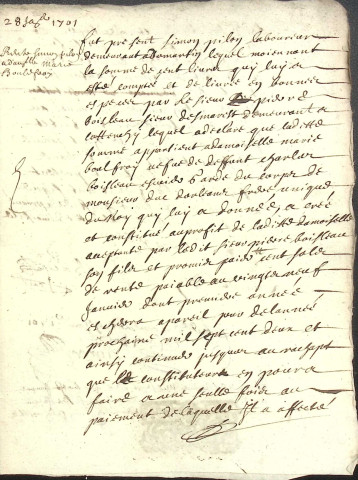 28 Ja 1701
Rente Simon pilon
a damlle Marie
Boullefroy
fut present Simon pilon laboureur
demeurant a lequel moiennant
la somme de cent livres quy luy a
esté compté et delivré en bonnes
especes par le sieur pierre
Boisleau sieur desmarest demeurant a
lequel a declaré que laditte
somme appartient a damoiselle marie
boulfroy vefue de deffunt charles
boisleau garde du corps de
monsieur duc dorleans frere unique
du Roy quy luy a donnés a créé
et constitué au profit de laditte damoiselle
acceptante par ledit sieur pierre boisleau
son fils et premier cent sols
de rente paiable au vingt neuf
Janvier dont premiere année
eschera a pareil jour de lannée
prochaine mil sept cent deux et
ainsy continuer jusques au rachapt
que le constituteur en poura
faire a une seulle fois au
paiement de laquelle Il a affecté